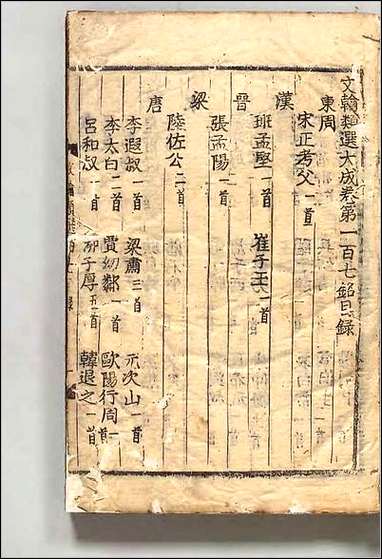 文翰類選大成卷第一百七銘目錄
東周
宋正考父一首
漢
班孟堅一首 崔子玉一首
晉
張孟陽一首
梁
陸佐公二首
唐
李遐叔一首 梁肅三首 元次山一首
李太白二首 賈幼鄰一首 歐陽行周一首
呂和叔一首 柳子厚五首 韓退之一首